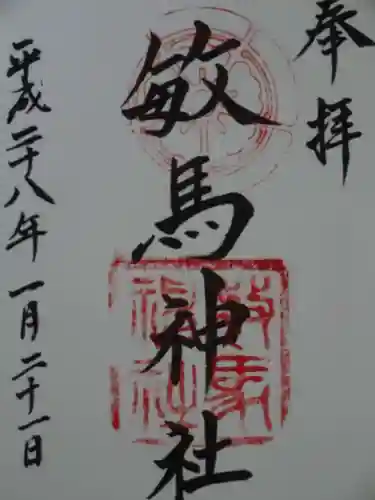 奉拝
敏馬神社
平成二十八年一月二十一日
敏馬神社